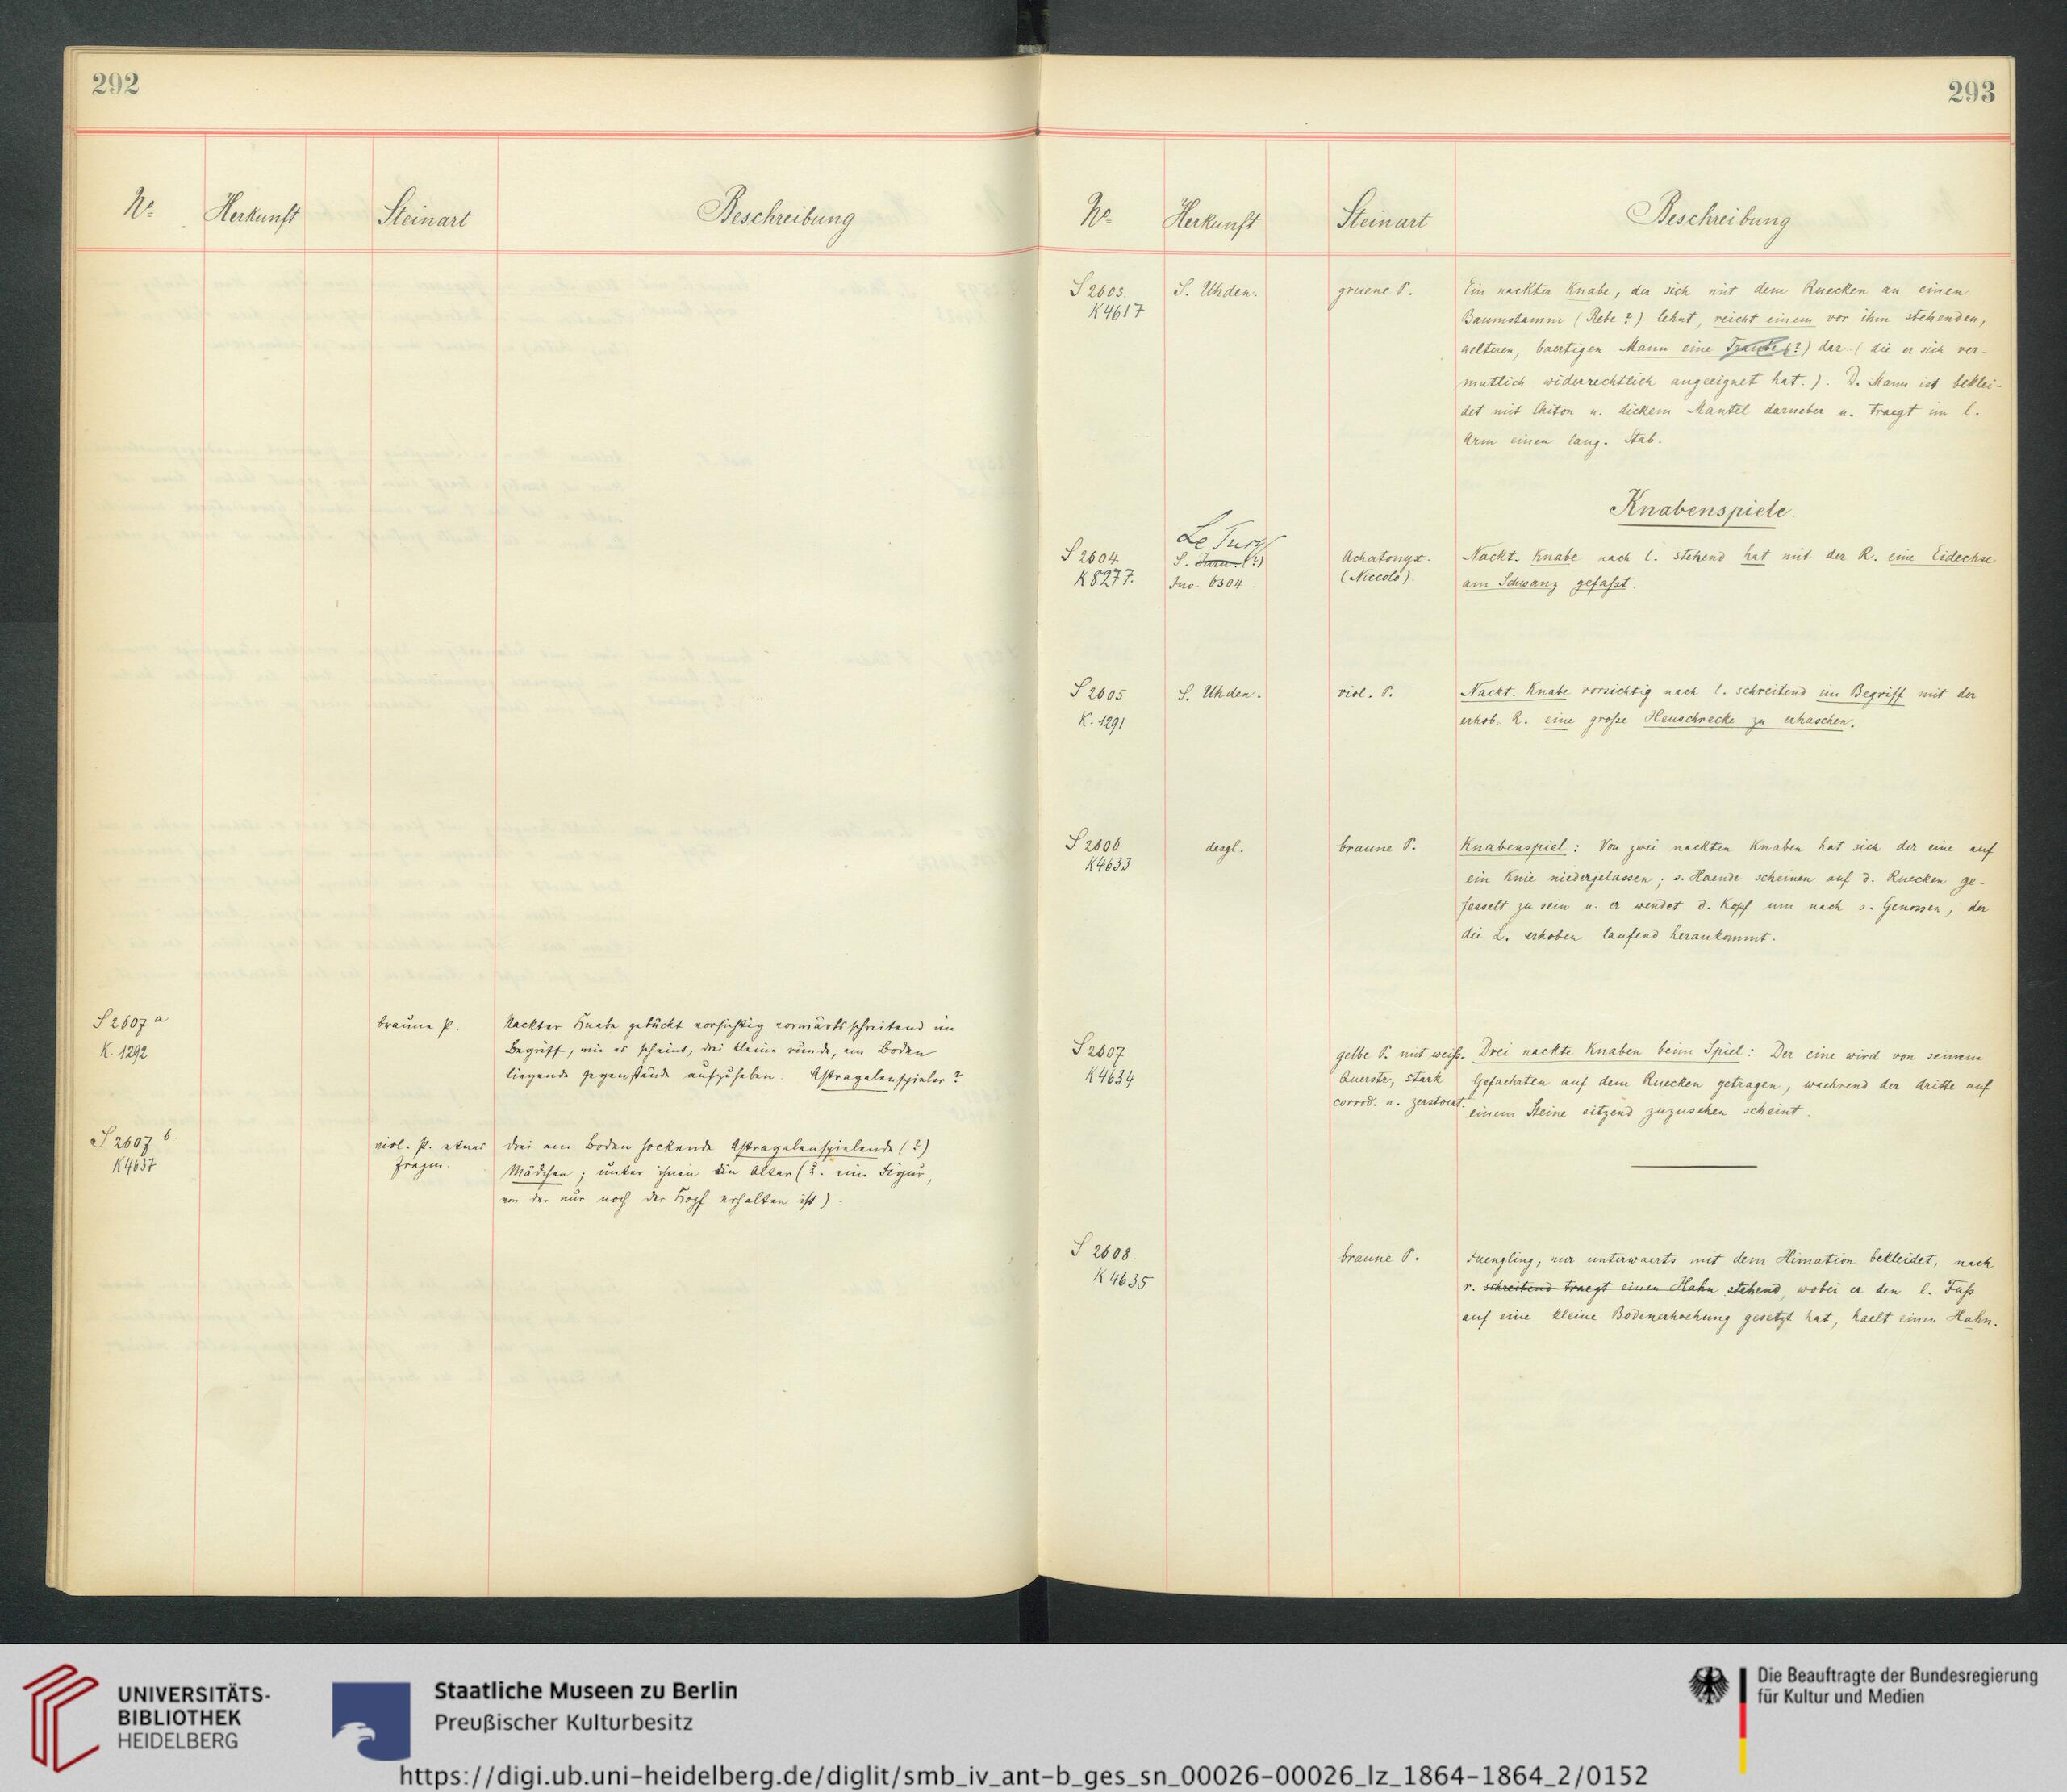 292
No Herkunft Steinart Beschreibung
S 2607 a
K. 1292
braune P.
Nackter Knabe gebückt vorsichtig vorwärts schreitend im
Begriff, wie es scheint, drei kleine runde, am Boden
liegende Gegenstände aufzuheben. Astragalenspieler?
S 2607 b.
K4637
viol. P. etwas
fragm.
Drei am Boden hockende Astragalenspielende (?)
Mädchen; unter ihnen ein Altar (u. eine Figur,
von der nur noch der Kopf erhalten ist).
293
No Herkunft Steinart Beschreibung
S 2603.
K4617
S. Uhden.
gruene P.
Ein nackter Knabe, der sich mit dem Ruecken an einen
Baumstamm (Rebe?) lehnt, reicht einem vor ihm stehenden,
aelteren, baertigen Mann eine Traube (?) dar (die er sich ver-
mutlich widerrechtlich angeeignet hat.). D. Mann ist beklei-
det mit Chiton u. dickem Mantel darueber u. traegt im l.
Arm einen lang. Stab.
Knabenspiele.
S 2604
K8277.
Le Turcq
S. (?)
Inv. 6304.
Achatonyx.
(Niccolo).
Nackt. Knabe nach l. stehend hat mit der R. eine Eidechse
am Schwanz gefaßt.
S 2605
K. 1291
S. Uhden.
viol. P.
Nackt. Knabe vorsichtig nach l. schreitend im Begriff mit der
erhob. R. eine große Heuschrecke zu erhaschen.
S 2606
K4633
desgl.
braune P.
Knabenspiel: Von zwei nackten Knaben hat sich der eine auf
ein Knie niedergelassen; s. Haende scheinen auf d. Ruecken ge-
fesselt zu sein u. er wendet d. Kopf um nach s. Genossen, der
die L. erhoben laufend herankommt.
S 2607
K4634
gelbe P. mit weiß.
Querstr., stark
corrod. u. zerstoert.
Drei nackte Knaben beim Spiel: Der eine wird von seinem
Gefaehrten auf dem Ruecken getragen, waehrend der dritte auf
einem Steine sitzend zuzusehen scheint.
S 2608.
K4635
braune P.
Juengling, nur unterwaerts mit dem Himation bekleidet, nach
r. schreitend traegt einen Hahn stehend, wobei er den l. Fuß
auf eine kleine Bodenerhoehung gesetzt hat, haelt einen Hahn.
UNIVERSITÄTS-
BIBLIOTHEK
HEIDELBERG
Staatliche Museen zu Berlin
Preußischer Kulturbesitz
Die Beauftragte der Bundesregierung
für Kultur und Medien
https://digi.ub.uni-heidelberg.de/diglit/smb_iv_ant-b_ges_sn_00026-00026_lz_1864-1864_2/0152